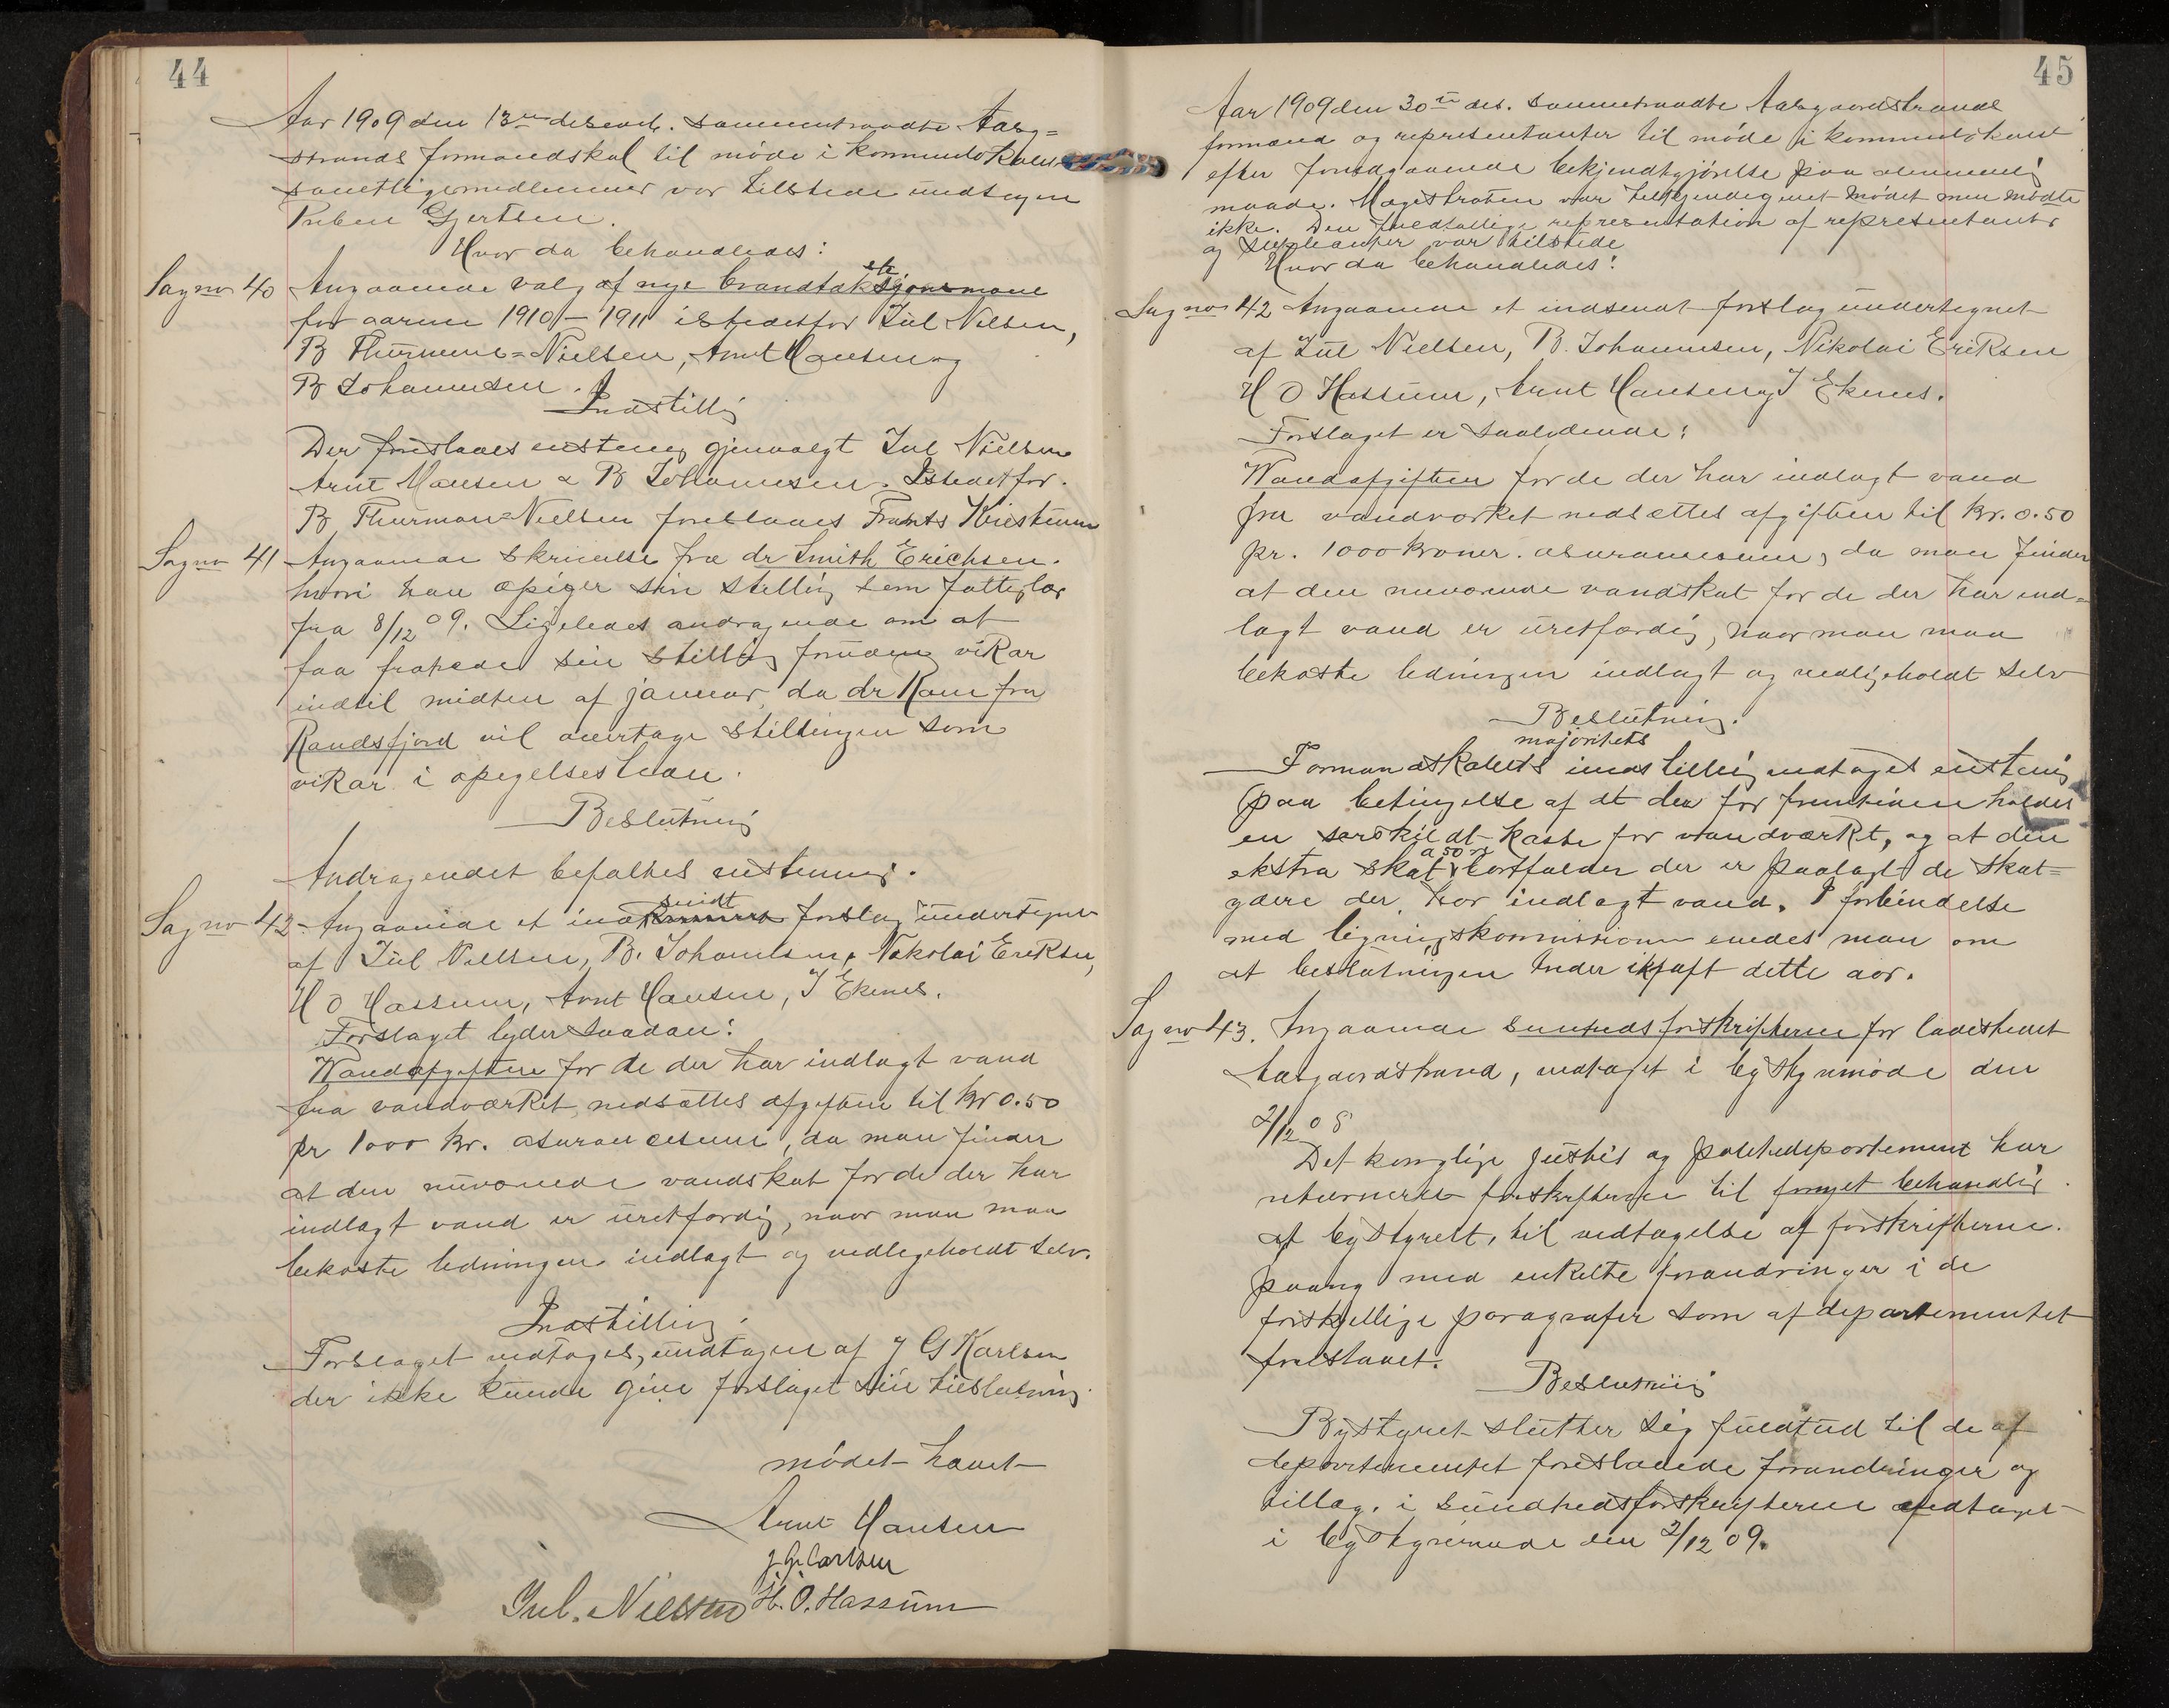 44
Aar 1909 den 13de desemb. sammentraadte Aasg=
strands formandskab til møde i kommunelokalet
samtlige medlemmer var tilstede undtagen
Preben Gjertsen.
Hvor da behandledes:
Sag no 40 Angaaende valg af nye brandtakstmænd
for aarene 1910 – 1911 istedetfor Jul Nilsen,
B Thurmann=Nielsen, Arnt Hansen og
B Johannesen.
Indstilling
Der foreslaaes enstemig gjenvalgt Jul Nielsen
Arnt Hansen & B Johannesen. Istedetfor
B Thurman=Nielsen foreslaaes Frants
Sag no 41 Angaaende skrivelse fra dr Smith Erichsen
hvori han opsiger sin stilling som fattiglæge
fra 8/12 09. Ligeledes andragende om at
faa fratræde sin stilling foruden vikar
indtil midten af januar, da dr Ram fra
Randsfjord vil overtage stillingen som
vikar i opsigelsestiden.
Beslutning
Andragendet befaltes enstemig.
Sag no 42 Angaaende et indsendt forslag undertegnet
af Jul Nielsen, B. Johannesen, Nikolai Eriksen,
H O Hassum, Arnt Hansen, J Ekenes.
Forslaget lyder saadan:
Vandafgiften for de der har indlagt vand
fra vandværket nedsættes afgiften til kr 0.50
pr 1000 kr. asurancesum, da man finder
at den nuværende vandskat for de der har
indlagt vand er uretfærdig, naar man maa
bekoste ledningen indlagt og vedligeholdt selv.
Indstilling.
Forslaget vedtages, undtagen af J G Karlsen
der ikke kunde give forslaget sin tilslutning.
mødet hævet
Arnt Hansen
J. G. Carlsen
Jul. Nielsen H. O. Hassum
45
Aar 1909 den 30te des. sammentraadte Aasgaardstrands
formænd og representanter til møde i kommunelokalet
efter forudgaaende bekjendtgjørelse paa almindelig
maade. Magistraten var tilkjendegivet mødet men mødte
ikke. Den fuldtallige representation af representanter
og suppleanter var tilstede
Hvor da behandledes:
Sag no 42 Angaaende et indsendt forslag undertegnet
af Jul Nielsen, B. Johannesen, Nikolai Eriksen
H O Hassum, Arnt Hansen og J Ekenes.
Forslaget er saalydende:
Vandafgiften for de der har indlagt vand
fra vandværket nedsættes afgiften til kr. 0.50
pr. 1000 kroner. asurancesum, da man finder
at den nuværende vandskat for de der har ind=
lagt vand er uretfærdig, naar man maa
bekoste ledningen indlagt og vedligeholdt selv
Beslutning.
majoritets
Formandskabets indstilling vedtaget enstemig
paa betingelse af at der for fremtiden holdes
en særskildt kasse for vandværket, og at den
ekstra skat a 50 øre bortfalder der er paalagt de skat=
ydere der har indlagt vand. I forbindelse
med ligningskommissionen enedes man om
at beslutningen træder ikraft dette aar.
Sag no 43. Angaaende sundhedsforskrifterne for ladestedet
Aasgaardstrand, vedtaget i bystyremøde den
2/12 08
Det kongelige justis og politidepartement har
returneret forskrifterne til fornyet behandling
af bystyret, til vedtagelse af forskrifterne
paany med enkelte forandringer i de
forskjellige paragrafer som af departementet
foreslaaet.
Beslutning
Bystyret slutter sig fuldtud til de af
departementet foreslaaede forandringer og
tillæg. i sundhedsforskrifterne vedtaget
i bystyremøde den 2/12 09.